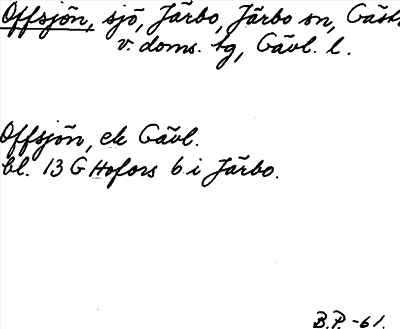 Offsjön, sjö, Järbo, Järbo sn, Gästr.
v. doms. tg, Gävl. l.
Offsjön, ek Gävl.
bl. 13 G Hofors 6 i Järbo.
B.P. -61.